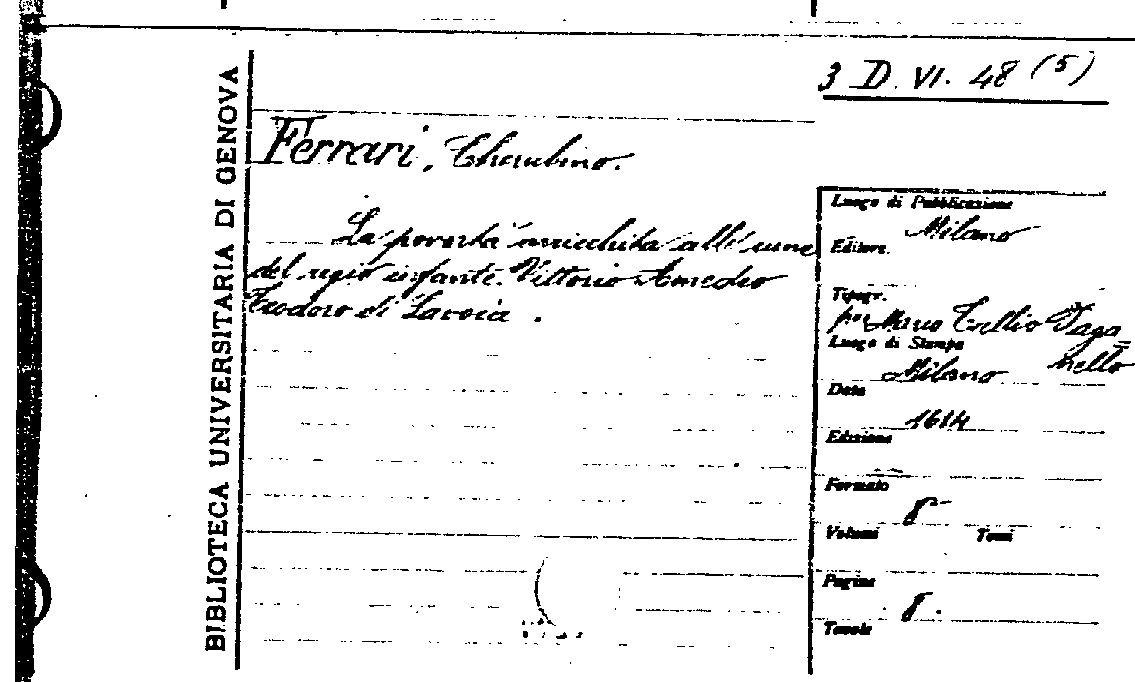 BIBLIOTECA UNIVERSITARIA DI GENOVA
3 D. VI. 48 (5)
Ferrari, Cherubino.
La povertà arricchita alle cune
del regio infante Vittorio Amedeo
Teodoro di Savoia.
Luogo di Pubblicazione
Milano
Editore.
Tipogr.
per Marco Tullio Paga=
nello
Luogo di Stampa
Milano
Data
1614
Edizione
Formato
8°
Volumi Tomi
Pagine
8.
Tavole